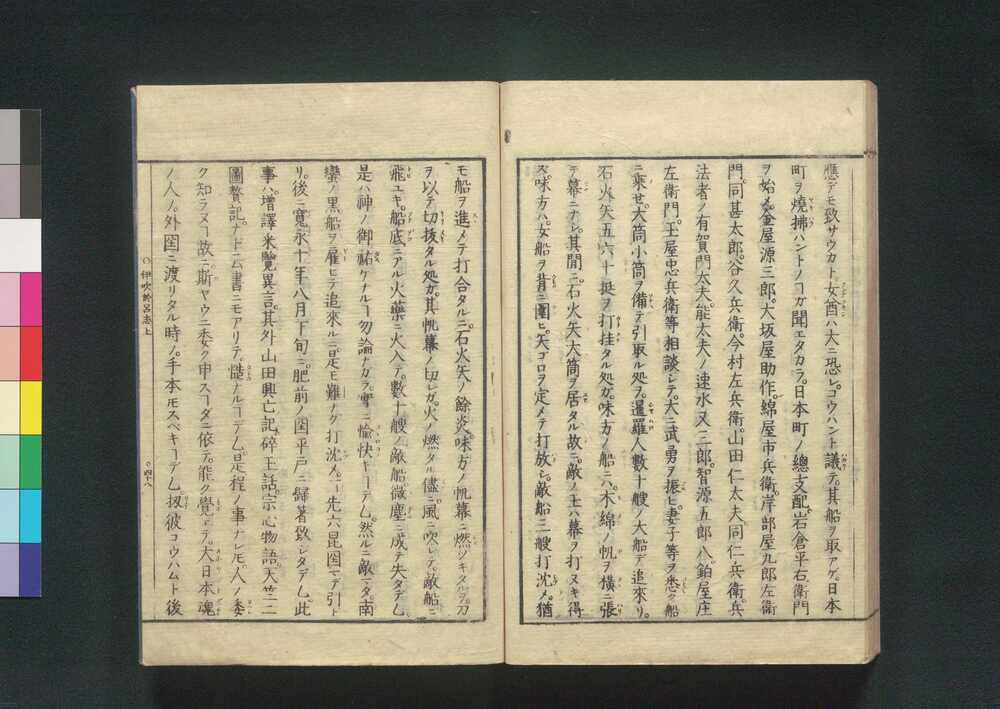 應デモ致サウカト女酋ハ大ニ恐レ。コウハント議テ。其船ヲ取アゲ。日本
町ヲ燒拂ハントノヿガ聞エタカラ。日本町ノ總支配。岩倉平右衛門
ヲ始メ。釜屋源三郎。大坂屋助作。綿屋市兵衛。岸部屋九郎左衛
門。同甚太郎。谷久兵衛。今村左兵衛。山田仁太夫。同仁兵衛。兵
法者ノ有賀門太夫。能太夫ノ速水又三郎。智源五郎八。鉑屋庄
左衛門。玉屋忠兵衛等相談シテ。大ニ武勇ヲ振ヒ。妻子等ヲ悉ク船
ニ乘セ。大筒小筒ヲ備テ引取ル処ヲ。暹羅人數十艘ノ大船デ追來リ。
石火矢五六十挺ヲ打挂タル処ガ。味方ノ船ニハ。木綿ノ帆ヲ横ニ張
テ幕ニナシ。其間ニ石火矢大筒ヲ居タル故ニ。敵ノ玉ハ幕ヲ打ヌキ得
ズ。味方ハ。女船ヲ背ニ圍ヒ。矢ゴロヲ定メテ打放シ。敵船三艘打沈メ。猶
モ船ヲ進メテ打合タルニ。石火矢ノ餘炎。味方ノ帆幕ニ燃ツキタルヲ。刀
ヲ以テ切抜タル処ガ。其帆幕ノ切レガ。火ノ燃タル儘ニ風ニ吹レテ。敵船ニ
飛ユキ。船底ニアル火藥ニ火入テ。數十艘ノ敵船。微塵ニ成テ失タデム
是ハ神ノ御祐ケナルヿ勿論ナガラ。實ニ愉快ナヿデム。然ルニ敵ハマタ。南
蠻ノ黒船ヲ雇ヒテ追來ルニ。是モ難ナク打沈メ。一ト先六昆国マデ引ト
リ。後ニ寛永十年八月下旬ニ。肥前ノ国平戸ニ歸著致シタデム。此
事ハ。増譯采覽異言。其外山田興亡記。碎玉話。宗心物語。天竺二
圖賛記。ナド云書ニモアリテ。慥ナルヿデム。是程ノ事ナレモ。人ノ委
ク知ラヌヿ故ニ。斯ヤウニ委ク申スヿダニ依テ。能ク覺エテ。大日本魂
ノ人ノ。外国ニ渡リタル時ノ。手本モスベキヿデム。扨彼コウハムト後
伊吹於呂志上
四十八